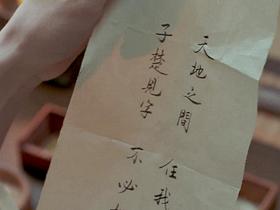 子楚見字
天地之間 任我
不必